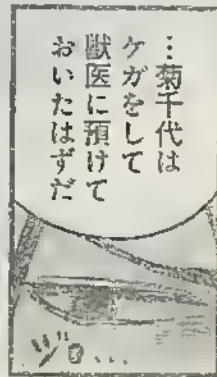 …菊千代は
ケガをして
獣医に預けて
おいたはずだ